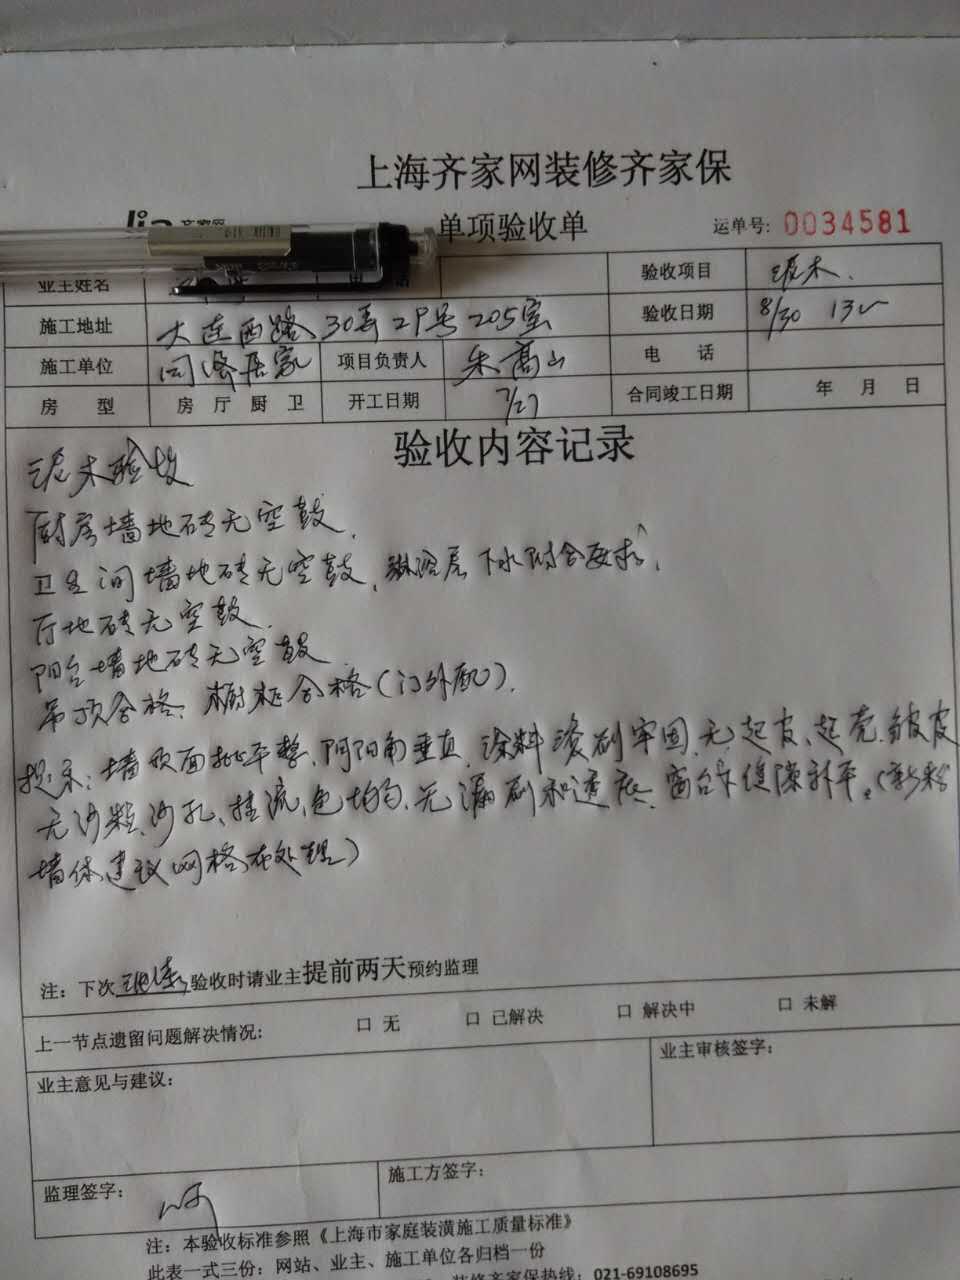 上海齐家网装修齐家保
单项验收单 运单号: 0034581
业主姓名 验收项目 泥木.
施工地址 大连西路30弄29号205室 验收日期 8/30 13
施工单位 同济居家 项目负责人 朱高山 电 话
房 型 房 厅 厨 卫 开工日期 7/27 合同竣工日期 年 月 日
验收内容记录
泥木验收
厨房墙地砖无空鼓.
卫生间墙地砖无空鼓,淋浴房下水附合要求.
厅地砖无空鼓.
阳台墙地砖无空鼓
吊顶合格.橱柜合格(门外配).
提示:墙顶面批平整,阴阳角垂直,涂料涂刷牢固,无起皮、起壳.皱皮
无沙粒、沙孔、挂流,色均匀,无漏刷和透底.窗台下缝隙补平。(新粉
墙体建议网格布处理)
注:下次 验收时请业主提前两天预约监理
上一节点遗留问题解决情况: □ 无 □ 已解决 □ 解决中 □ 未解
业主意见与建议: 业主审核签字:
监理签字: 施工方签字:
注:本验收标准参照《上海市家庭装潢施工质量标准》
此表一式三份:网站、业主、施工单位各归档一份
装修齐家保热线:021-69108695